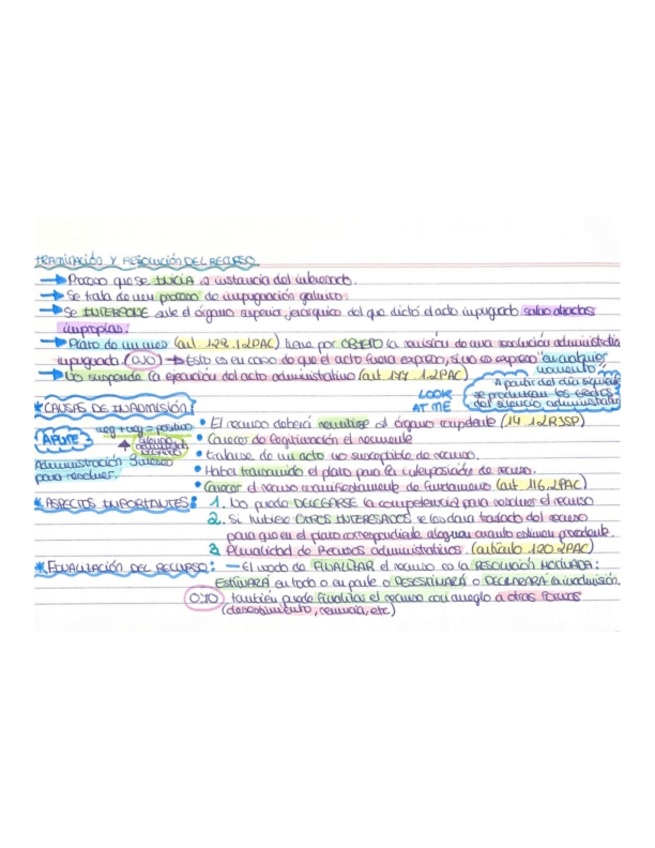 TRAMITACIÓN Y RESOLUCIÓN DEL RECURSO
→ Proceso que se INICIA a instancia del interesado.
→ Se trata de un proceso de impugnación genuino.
→ Se INTERPONE ante el órgano superior jerárquico del que dictó el acto impugnado salvo alzadas
impropias.
→ Plazo de un mes (art. 122.1 2PAC) tiene por OBJETO la revisión de una resolución administrativa
impugnada. (OJO) → Esto es en caso de que el acto fuera expreso, si no es expreso "en cualquier
momento"
→ No suspende la ejecución del acto administrativo (art. 117 1.2PAC)
LOOK AT ME
A partir del día siguiente
se produzcan los efectos
del silencio administrativo
* CAUSAS DE INADMISIÓN:
• El recurso deberá remitirse al órgano competente (14.1 2RJSP)
• Carecer de legitimación el recurrente
• tratarse de un acto no susceptible de recurso.
• Haber transcurrido el plazo para la interposición de recurso.
• Carecer el recurso manifiestamente de fundamento (art. 116,2PAC)
APUNTE
neg + neg = positivo
silencio administrativo
Administración 3 meses
para resolver.
* ASPECTOS IMPORTANTES:
1. No puede DELEGARSE la competencia para resolver el recurso
2. Si hubiere OTROS INTERESADOS se les dara traslado del recurso
para que en el plazo correspondiente aleguen cuanto estimen procedente.
3. Pluralidad de Recursos administrativos. (artículo 120 2PAC)
* FINALIZACIÓN DEL RECURSO: — El modo de FINALIZAR el recurso es la RESOLUCIÓN MOTIVADA:
ESTIMARÁ en todo o en parte o DESESTIMARÁ o DECLARARÁ la inadmisión.
OJO también puede finalizar el recurso con arreglo a otras formas
(desestimiento, renuncia, etc)